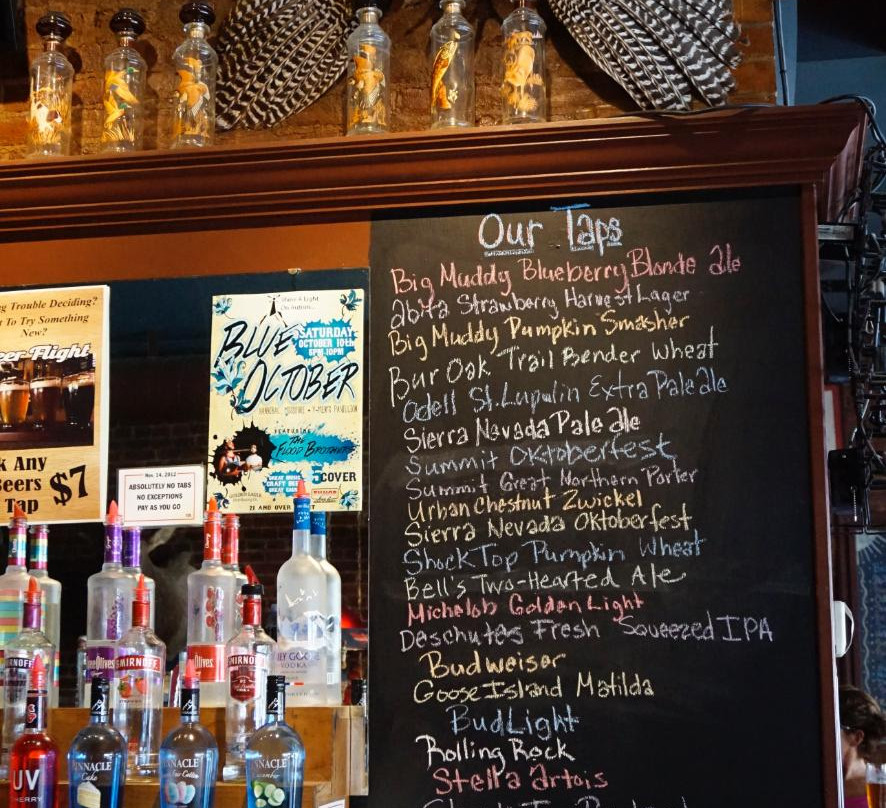 Our Taps
Big Muddy Blueberry Blonde ale
abita Strawberry Harvest Lager
Big Muddy Pumpkin Smasher
Bur Oak Trail Bender Wheat
Odell St. Lupulin Extra Pale ale
Sierra Nevada Pale ale
Summit Oktoberfest
Summit Great Northern Porter
Urban Chestnut Zwickel
Sierra Nevada Oktoberfest
Shock Top Pumpkin Wheat
Bell's Two-Hearted Ale
Michelob Golden Light
Deschutes Fresh Squeezed IPA
Budweiser
Goose Island Matilda
Bud Light
Rolling Rock
Stella artois
g Trouble Deciding?
t To Try Something
New?
eer Flight
k Any
Beers
Tap
$7
BLUE
OCTOBER
SATURDAY
OCTOBER 10th
5PM-10PM
FEATURING
THE
FLOOD BROTHERS
GREAT MUSIC
CRAFT BEER
GREAT
$5 COVER
21 AND OVER
Nov. 14, 2012
ABSOLUTELY NO TABS
NO EXCEPTIONS
PAY AS YOU GO
SMIRNOFF
SMIRNOFF
SMIRNOFF
Olives
Olives
EY GOOSE
VODKA
UV
HERRY
NNACLE
Cake
NNACLE
PINNACLE